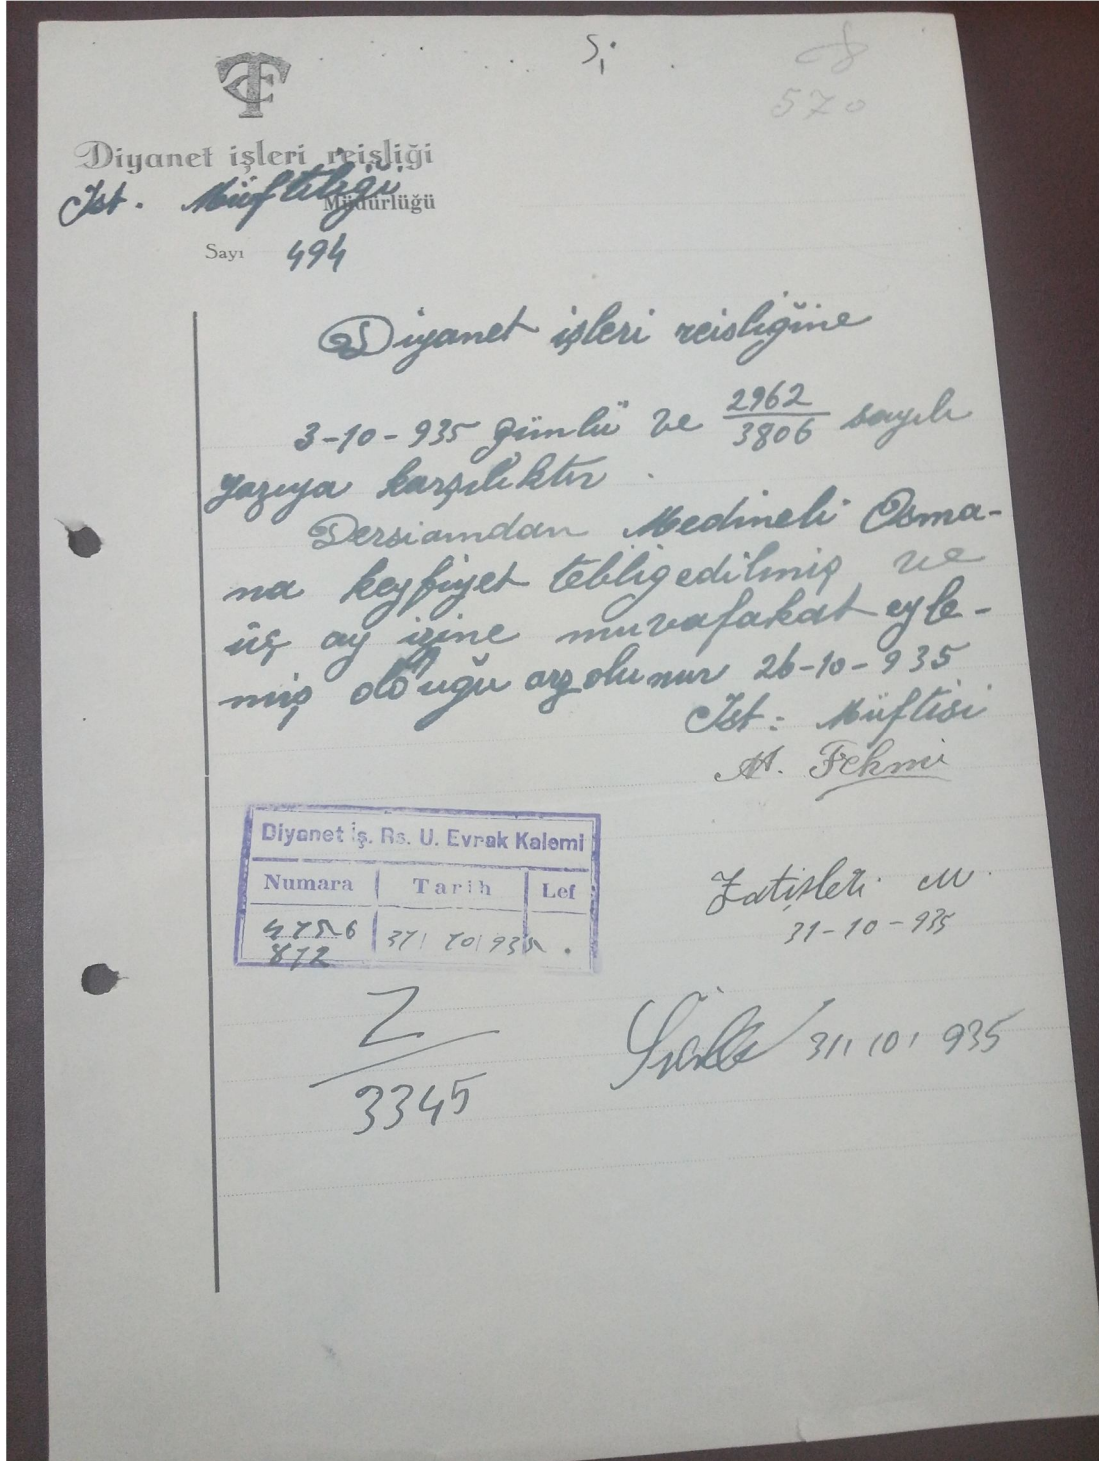 TC
570
Diyanet işleri reisliği
Ist. Müftiliği
Müdürlüğü
Sayı 494
Diyanet işleri reisliğine
3-10-935 günlü ve 2962/3806 sayılı
yazıya karşılıktır.
Dersiamdan Medineli Osma-
na keyfiyet tebliğ edilmiş ve
üç ay izine muvafakat eyle-
miş olduğu arzolunur 26-10-935
Ist: Müftisi
M. Fehmi
Diyanet İş. Rs. U. Evrak Kalemi
Numara Tarih Lef
31 10 935
872
Zatişleri M.
31-10-935
Z
3345
31 10 935